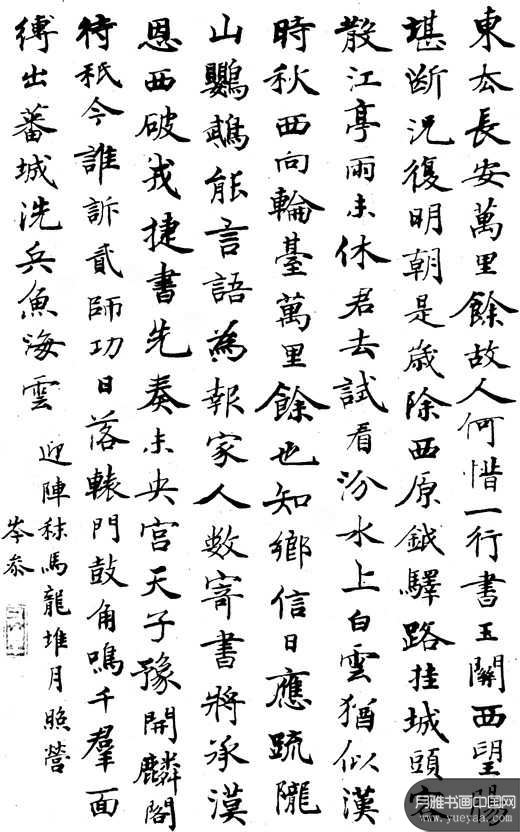 東去長安萬里餘故人何惜一行書玉關西望腸
堪断況復明朝是歲除西原鉞驛路挂城頭客
散江亭雨未休君去試看汾水上白雲猶似漢
時秋西向輪臺萬里餘也知鄉信日應疏隴
山鸚鵡能言語為報家人數寄書將承漠
恩西破戎捷書先奏未央宮天子豫開麟閣
待秖今誰訴貳師功日落轅門鼓角鳴千羣面
縛出蕃城洗兵魚海雲
迎陣秣馬龍堆月照營
岑参
月雅书画中国网
www.yueyaa.com